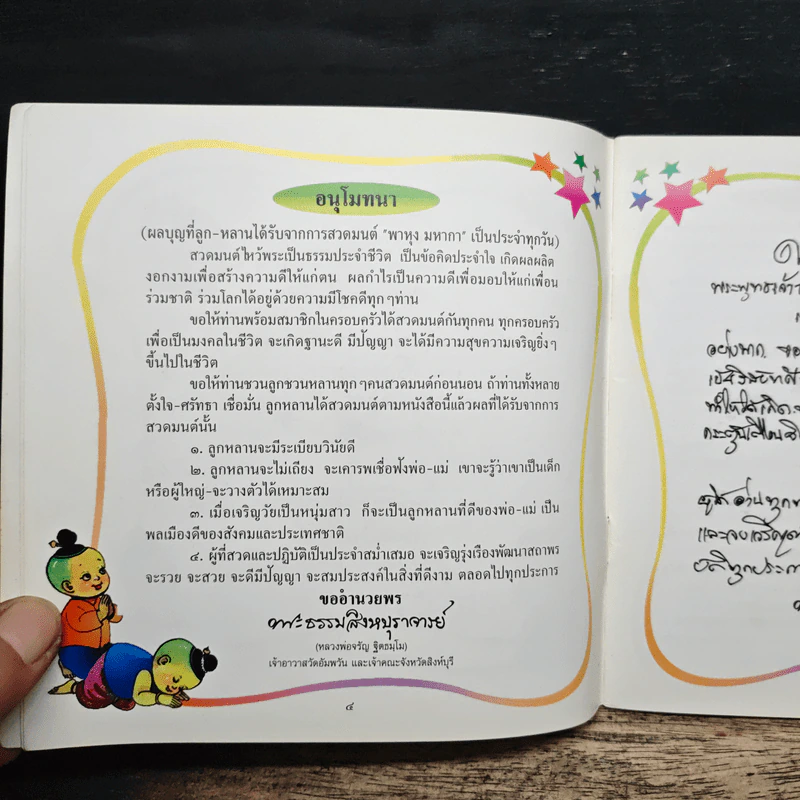 อนุโมทนา
(ผลบุญที่ลูก-หลานได้รับจากการสวดมนต์ "พาหุง มหากา" เป็นประจำทุกวัน)
สวดมนต์ไหว้พระเป็นธรรมประจำชีวิต เป็นข้อคิดประจำใจ เกิดผลผลิต
งอกงามเพื่อสร้างความดีให้แก่ตน ผลกำไรเป็นความดีเพื่อมอบให้แก่เพื่อน
ร่วมชาติ ร่วมโลกได้อยู่ด้วยความมีโชคดีทุกๆท่าน
ขอให้ท่านพร้อมสมาชิกในครอบครัวได้สวดมนต์กันทุกคน ทุกครอบครัว
เพื่อเป็นมงคลในชีวิต จะเกิดฐานะดี มีปัญญา จะได้มีความสุขความเจริญยิ่งๆ
ขึ้นไปในชีวิต
ขอให้ท่านชวนลูกชวนหลานทุกๆคนสวดมนต์ก่อนนอน ถ้าท่านทั้งหลาย
ตั้งใจ-ศรัทธา เชื่อมั่น ลูกหลานได้สวดมนต์ตามหนังสือนี้แล้วผลที่ได้รับจากการ
สวดมนต์นั้น
๑. ลูกหลานจะมีระเบียบวินัยดี
๒. ลูกหลานจะไม่เถียง จะเคารพเชื่อฟังพ่อ-แม่ เขาจะรู้ว่าเขาเป็นเด็ก
หรือผู้ใหญ่-จะวางตัวได้เหมาะสม
๓. เมื่อเจริญวัยเป็นหนุ่มสาว ก็จะเป็นลูกหลานที่ดีของพ่อ-แม่ เป็น
พลเมืองดีของสังคมและประเทศชาติ
๔. ผู้ที่สวดและปฏิบัติเป็นประจำสม่ำเสมอ จะเจริญรุ่งเรืองพัฒนาสถาพร
จะรวย จะสวย จะดีมีปัญญา จะสมประสงค์ในสิ่งที่ดีงาม ตลอดไปทุกประการ
ขออำนวยพร
พระธรรมสิงหบุราจารย์
(หลวงพ่อจรัญ ฐิตธมฺโม)
เจ้าอาวาสวัดอัมพวัน และเจ้าคณะจังหวัดสิงห์บุรี
๔
พระพุทธเจ้า